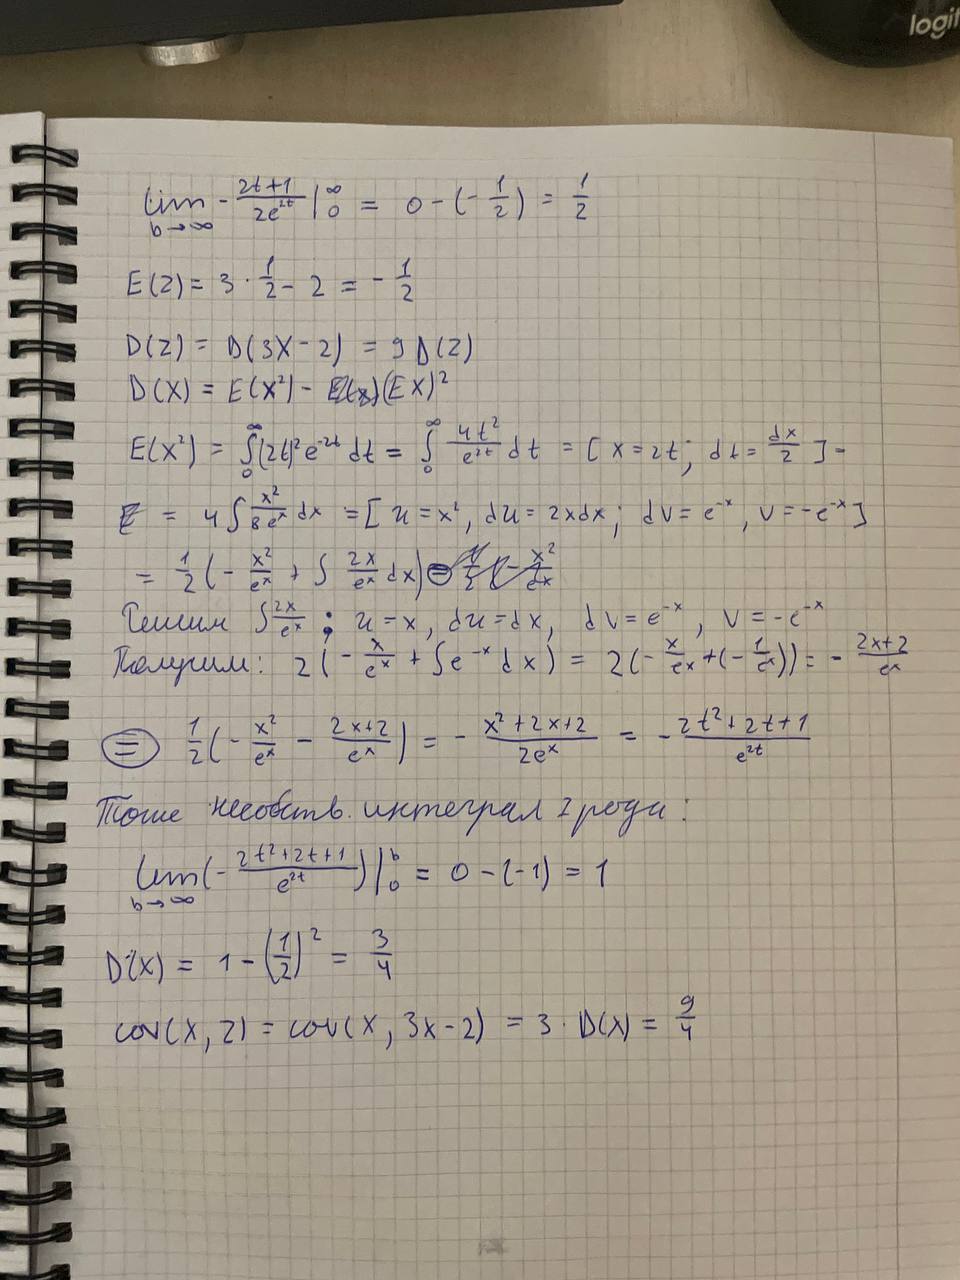 logi
lim b→∞ -(2t+1)/(2e^{2t}) |_0^∞ = 0 - (-1/2) = 1/2
E(Z) = 3 · 1/2 - 2 = -1/2
D(Z) = D(3X - 2) = 9 D(Z)
D(X) = E(X²) - (EX)²
E(X²) = ∫_0^∞ (2t)² e^{-2t} dt = ∫_0^∞ 4t²/e^{2t} dt = [x = 2t; dt = dx/2] =
= 4∫ x²/(8e^x) dx = [u = x², du = 2xdx; dv = e^{-x}, v = -e^{-x}]
= 1/2 (-x²/e^x + ∫ 2x/e^x dx) =
Решим ∫ 2x/e^x : u = x, du = dx, dv = e^{-x}, v = -e^{-x}
Получим: 2(-x/e^x + ∫e^{-x} dx) = 2(-x/e^x + (-1/e^x)) = -(2x+2)/e^x
= 1/2 (-x²/e^x - (2x+2)/e^x) = -(x²+2x+2)/(2e^x) = -(2t²+2t+1)/e^{2t}
Тоже несобств. интеграл I рода:
lim b→∞ (-(2t²+2t+1)/e^{2t}) |_0^b = 0 - (-1) = 1
D(X) = 1 - (1/2)² = 3/4
cov(X, Z) = cov(X, 3X - 2) = 3 · D(X) = 9/4